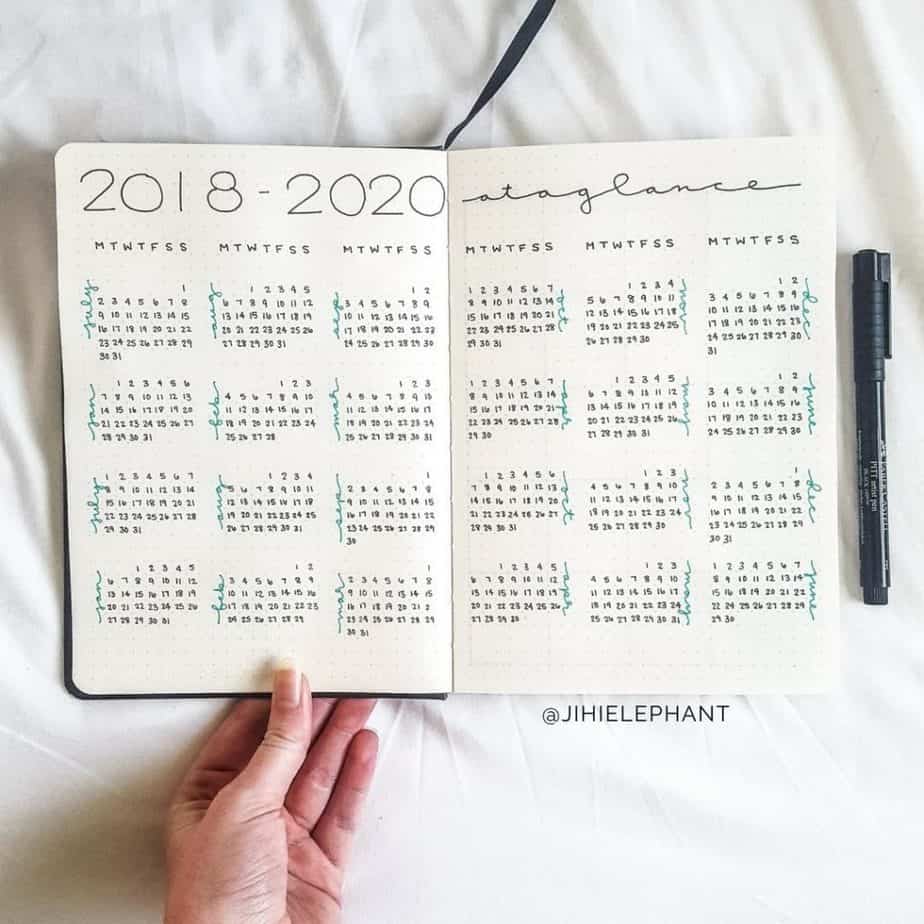 2018-2020
at a glance
M T W T F S S
M T W T F S S
M T W T F S S
M T W T F S S
M T W T F S S
M T W T F S S
july
1
2 3 4 5 6 7 8
9 10 11 12 13 14 15
16 17 18 19 20 21 22
23 24 25 26 27 28 29
30 31
aug
1 2 3 4 5
6 7 8 9 10 11 12
13 14 15 16 17 18 19
20 21 22 23 24 25 26
27 28 29 30 31
sep
1 2
3 4 5 6 7 8 9
10 11 12 13 14 15 16
17 18 19 20 21 22 23
24 25 26 27 28 29 30
oct
1 2 3 4 5 6 7
8 9 10 11 12 13 14
15 16 17 18 19 20 21
22 23 24 25 26 27 28
29 30 31
nov
1 2 3 4
5 6 7 8 9 10 11
12 13 14 15 16 17 18
19 20 21 22 23 24 25
26 27 28 29 30
dec
1 2
3 4 5 6 7 8 9
10 11 12 13 14 15 16
17 18 19 20 21 22 23
24 25 26 27 28 29 30
31
jan
1 2 3 4 5 6
7 8 9 10 11 12 13
14 15 16 17 18 19 20
21 22 23 24 25 26 27
28 29 30 31
feb
1 2 3
4 5 6 7 8 9 10
11 12 13 14 15 16 17
18 19 20 21 22 23 24
25 26 27 28
mar
1 2 3
4 5 6 7 8 9 10
11 12 13 14 15 16 17
18 19 20 21 22 23 24
25 26 27 28 29 30 31
apr
1 2 3 4 5 6 7
8 9 10 11 12 13 14
15 16 17 18 19 20 21
22 23 24 25 26 27 28
29 30
may
1 2 3 4 5
6 7 8 9 10 11 12
13 14 15 16 17 18 19
20 21 22 23 24 25 26
27 28 29 30 31
june
1 2
3 4 5 6 7 8 9
10 11 12 13 14 15 16
17 18 19 20 21 22 23
24 25 26 27 28 29 30
july
1 2 3 4 5 6 7
8 9 10 11 12 13 14
15 16 17 18 19 20 21
22 23 24 25 26 27 28
29 30 31
aug
1 2 3 4
5 6 7 8 9 10 11
12 13 14 15 16 17 18
19 20 21 22 23 24 25
26 27 28 29 30 31
sep
1
2 3 4 5 6 7 8
9 10 11 12 13 14 15
16 17 18 19 20 21 22
23 24 25 26 27 28 29
30
oct
1 2 3 4 5 6
7 8 9 10 11 12 13
14 15 16 17 18 19 20
21 22 23 24 25 26 27
28 29 30 31
nov
1 2 3
4 5 6 7 8 9 10
11 12 13 14 15 16 17
18 19 20 21 22 23 24
25 26 27 28 29 30
dec
1
2 3 4 5 6 7 8
9 10 11 12 13 14 15
16 17 18 19 20 21 22
23 24 25 26 27 28 29
30 31
jan
1 2 3 4 5
6 7 8 9 10 11 12
13 14 15 16 17 18 19
20 21 22 23 24 25 26
27 28 29 30 31
feb
1 2
3 4 5 6 7 8 9
10 11 12 13 14 15 16
17 18 19 20 21 22 23
24 25 26 27 28 29
mar
1
2 3 4 5 6 7 8
9 10 11 12 13 14 15
16 17 18 19 20 21 22
23 24 25 26 27 28 29
30 31
apr
1 2 3 4 5
6 7 8 9 10 11 12
13 14 15 16 17 18 19
20 21 22 23 24 25 26
27 28 29 30
may
1 2 3
4 5 6 7 8 9 10
11 12 13 14 15 16 17
18 19 20 21 22 23 24
25 26 27 28 29 30 31
june
1 2 3 4 5 6 7
8 9 10 11 12 13 14
15 16 17 18 19 20 21
22 23 24 25 26 27 28
29 30
PITT artist pen
@JIHIELEPHANT